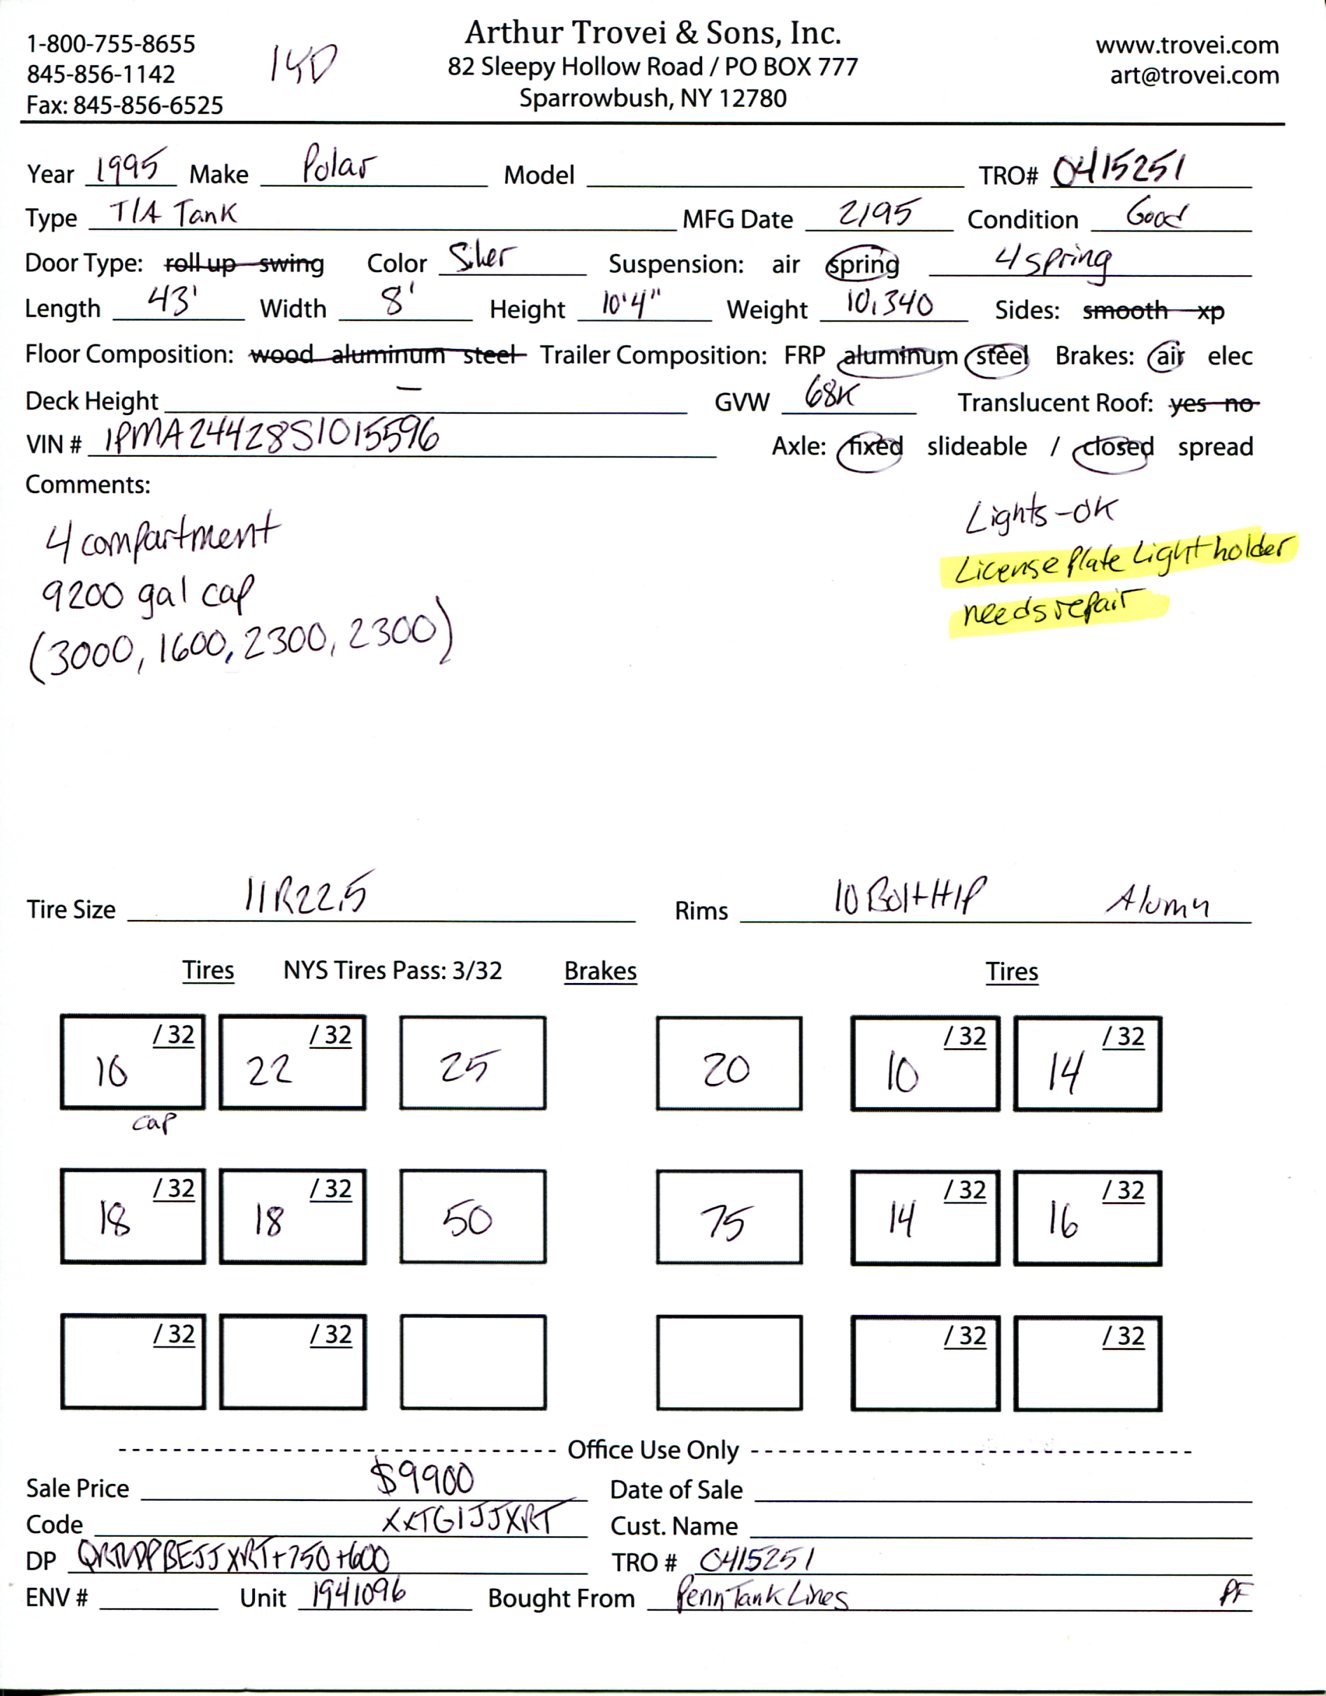 Arthur Trovei & Sons, Inc.
1-800-755-8655
845-856-1142
Fax: 845-856-6525
82 Sleepy Hollow Road / PO BOX 777
Sparrowbush, NY 12780
www.trovei.com
art@trovei.com
Year 1995 Make Polar Model TRO# 0415251
Type T/A Tank MFG Date 2/95 Condition Good
Door Type: roll up swing Color Silver Suspension: air spring 4 spring
Length 43' Width 8' Height 10'4" Weight 10,340 Sides: smooth xp
Floor Composition: wood aluminum steel Trailer Composition: FRP aluminum steel Brakes: air elec
Deck Height — GVW 68K Translucent Roof: yes no
VIN # 1PMA24428S1015596 Axle: fixed slideable / closed spread
Comments:
4 compartment
9200 gal cap
(3000, 1600, 2300, 2300)
Lights-OK
License Plate Light holder
needs repair
Tire Size 11R22.5 Rims 10 Bolt H/P Alumn
Tires NYS Tires Pass: 3/32 Brakes Tires
16 /32 22 /32 25 20 10 /32 14 /32
cap
18 /32 18 /32 50 75 14 /32 16 /32
/32 /32 /32 /32
Office Use Only
Sale Price $9900 Date of Sale
Code XXTGIJJXRT Cust. Name
DP +750+600 TRO # 0415251
ENV # Unit 1941096 Bought From Penn Tank Lines PF